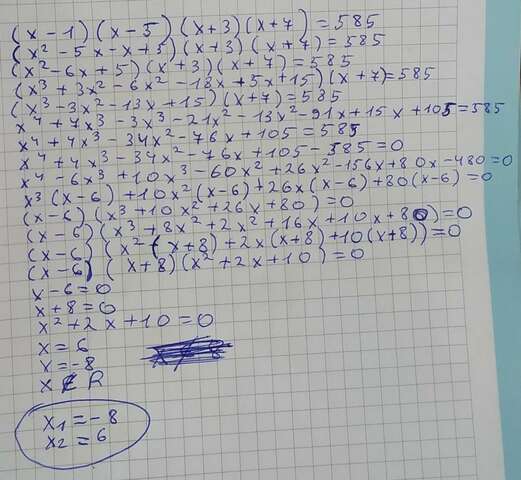 (x-1)(x-5)(x+3)(x+7)=585
(x²-5x-x+5)(x+3)(x+7)=585
(x²-6x+5)(x+3)(x+7)=585
(x³+3x²-6x²-18x+5x+15)(x+7)=585
(x³-3x²-13x+15)(x+7)=585
x⁴+7x³-3x³-21x²-13x²-91x+15x+105=585
x⁴+4x³-34x²-76x+105=585
x⁴+4x³-34x²-76x+105-585=0
x⁴-6x³+10x³-60x²+26x²-156x+80x-480=0
x³(x-6)+10x²(x-6)+26x(x-6)+80(x-6)=0
(x-6)(x³+10x²+26x+80)=0
(x-6)(x³+8x²+2x²+16x+10x+80)=0
(x-6)(x²(x+8)+2x(x+8)+10(x+8))=0
(x-6)(x+8)(x²+2x+10)=0
x-6=0
x+8=0
x²+2x+10=0
x=6
x=-8
x∉R
x₁=-8
x₂=6